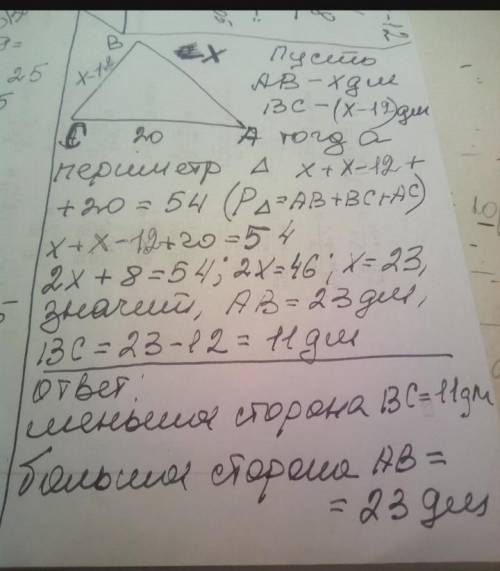 25
-12
B
x-12
x
C
20
A
Пусть
AB - x дм
BC - (x-12) дм
тогда
периметр Δ x+x-12+
+20=54 (PΔ=AB+BC+AC)
x+x-12+20=54
2x+8=54; 2x=46; x=23,
значит, AB=23 дм,
BC=23-12=11 дм
ответ:
меньшая сторона BC=11 дм
большая сторона AB=
=23 дм